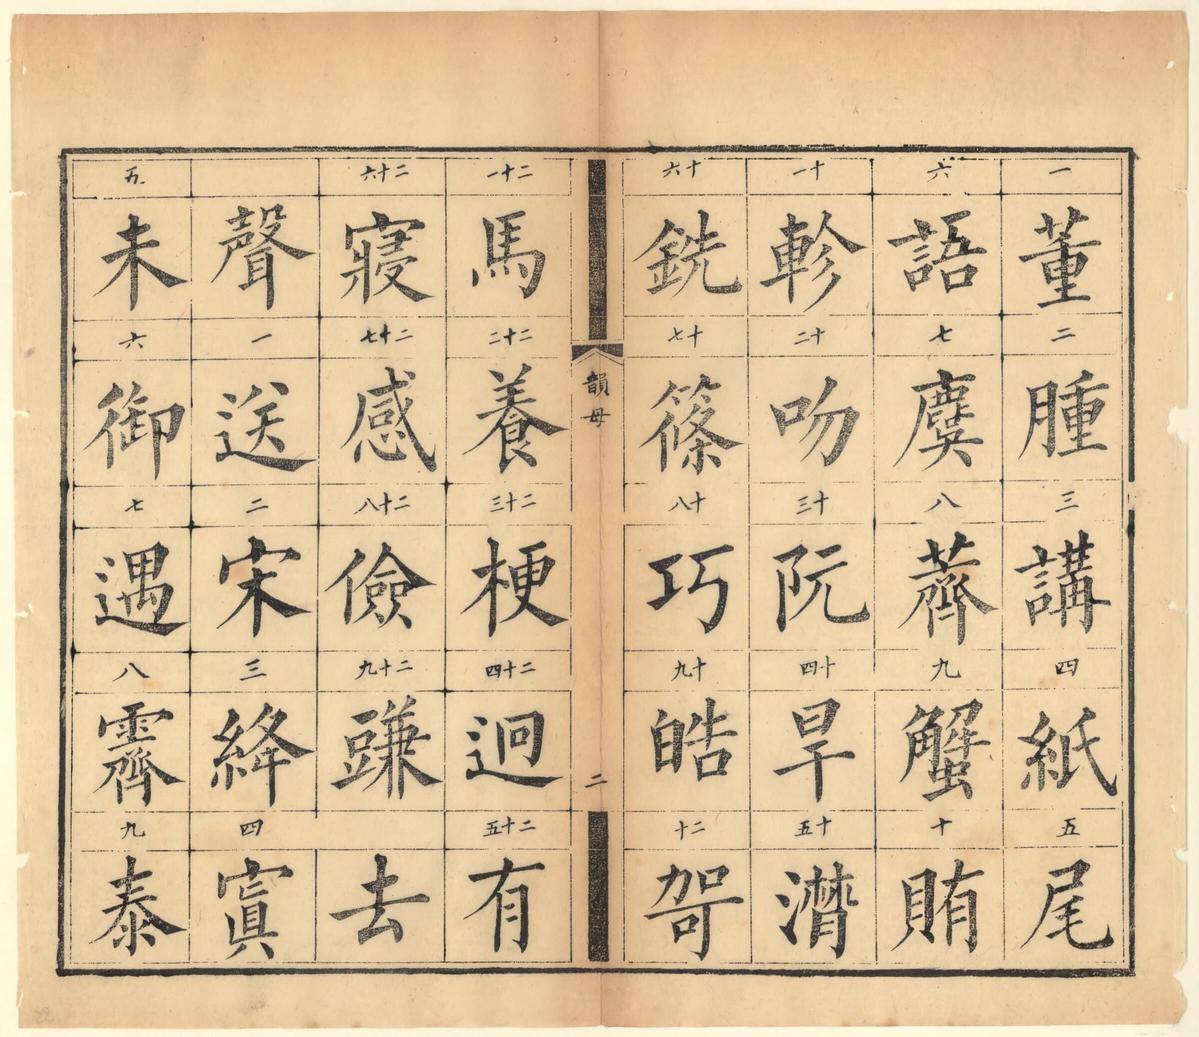 一 董 二 腫 三 講 四 紙 五 尾
六 語 七 麌 八 薺 九 蟹 十 賄
十一 軫 十二 吻 十三 阮 十四 旱 十五 潸
十六 銑 十七 篠 十八 巧 十九 皓 二十 哿
韻母 二
二十一 馬 二十二 養 二十三 梗 二十四 迥 二十五 有
二十六 寢 二十七 感 二十八 儉 二十九 豏 去
聲 一 送 二 宋 三 絳 四 寘
五 未 六 御 七 遇 八 霽 九 泰